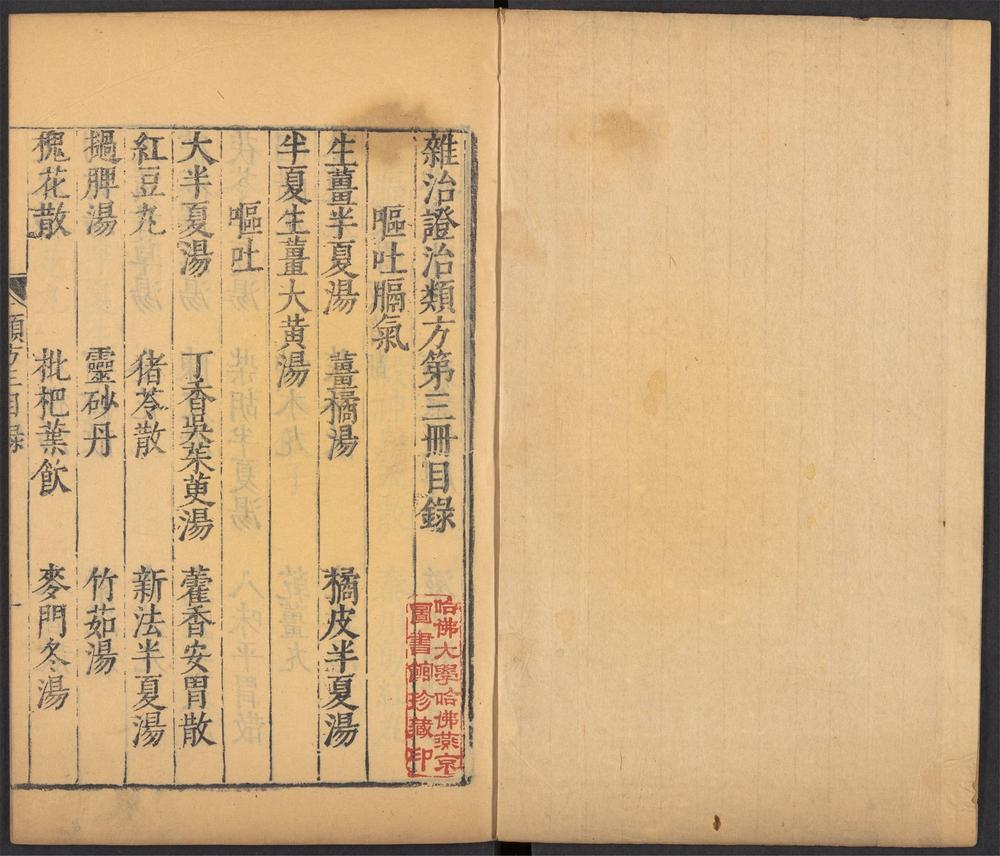 雜治證治類方第三冊目錄
嘔吐膈氣
生薑半夏湯 薑橘湯 橘皮半夏湯
半夏生薑大黃湯
嘔吐
大半夏湯 丁香吳茱萸湯 藿香安胃散
紅豆丸 豬苓散 新法半夏湯
撾脾湯 靈砂丹 竹茹湯
槐花散 枇杷葉飲 麥門冬湯
類方三目錄 一
哈佛大學哈佛燕京
圖書館珍藏印